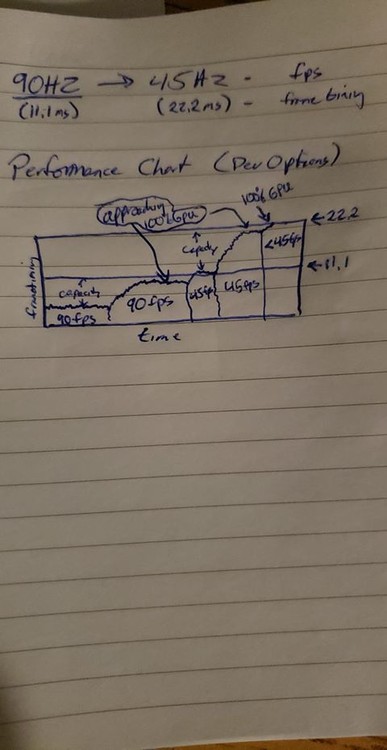 90HZ → 45HZ - fps
(11.1ms) (22.2ms) - frame timing
Performance Chart (Dev Options)
approaching 100% GPU
100% GPU
← 22.2
capacity
<45fps
← 11.1
frametiming
capacity
90fps
90fps
45fps
45fps
time